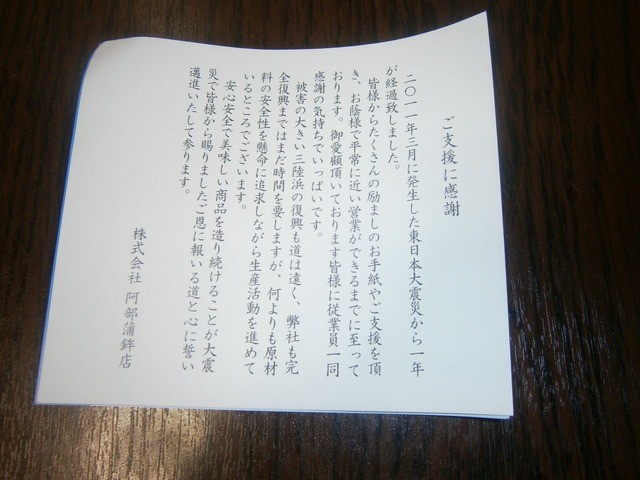 ご支援に感謝
二〇一一年三月に発生した東日本大震災から一年
が経過致しました。
皆様からたくさんの励ましのお手紙やご支援を頂
き、お陰様で平常に近い営業ができるまでに至って
おります。御愛顧頂いております皆様に従業員一同
感謝の気持ちでいっぱいです。
被害の大きい三陸浜の復興も道は遠く、弊社も完
全復興まではまだ時間を要しますが、何よりも原材
料の安全性を懸命に追求しながら生産活動を進めて
いるところでございます。
安心安全で美味しい商品を造り続けることが大震
災で皆様から賜りましたご恩に報いる道と心に誓い
邁進いたして参ります。
株式会社 阿部蒲鉾店